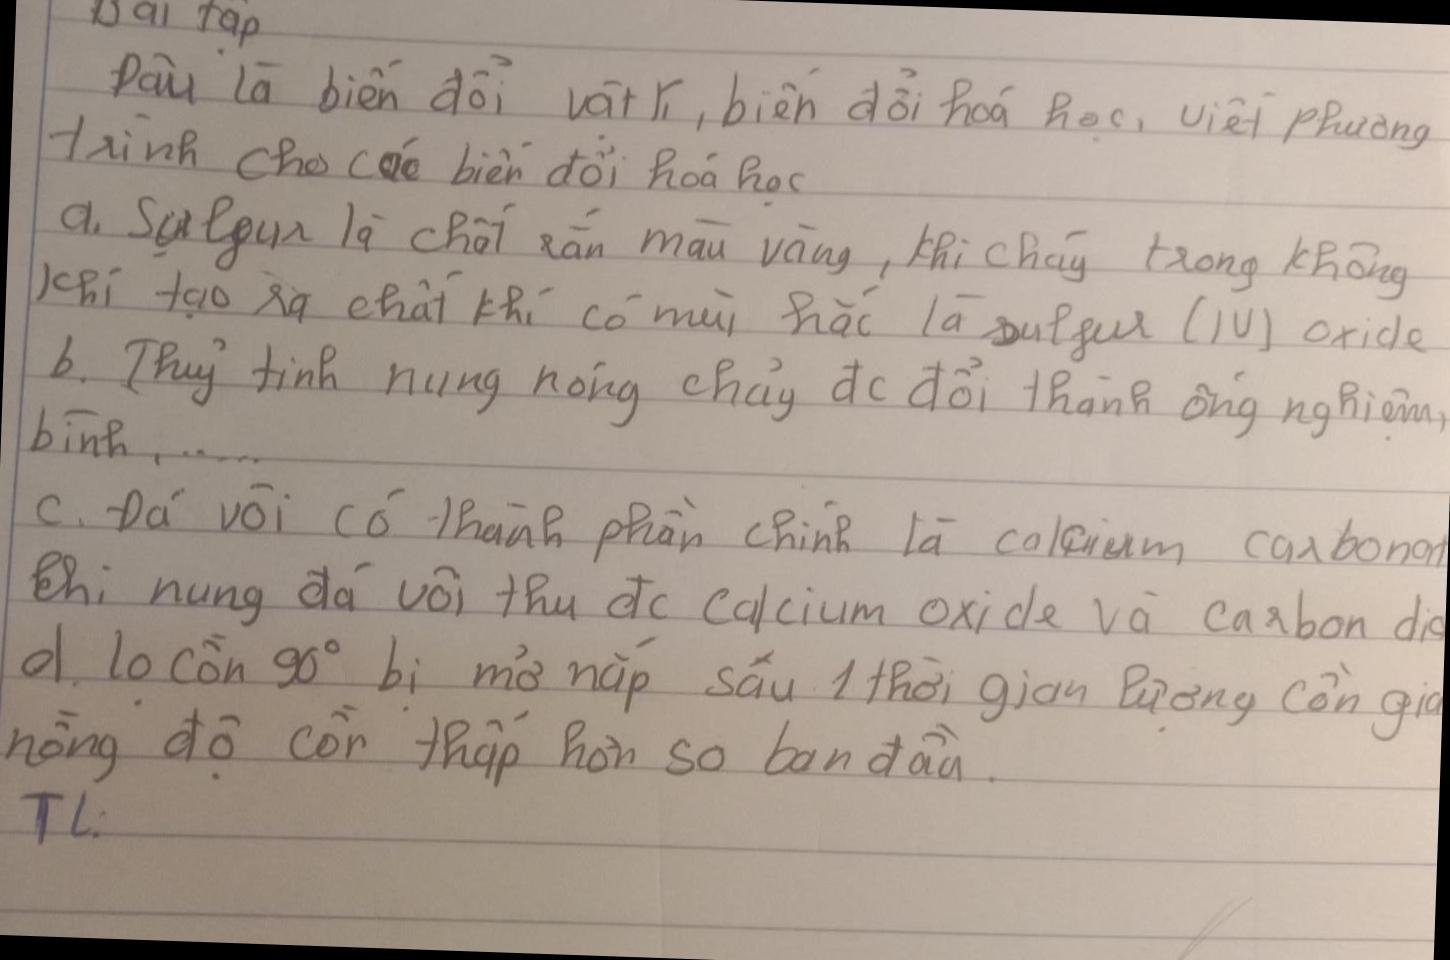 Bài tập
Đâu là biến đổi vật lí, biến đổi hoá học, viết phương
trình cho các biến đổi hoá học
a. Sulfur là chất rắn màu vàng, khi cháy trong không
khí tạo ra chất khí có mùi hắc là sulfur (IV) oxide
b. Thuỷ tinh nung nóng chảy đc đổi thành ống nghiệm,
bình, ......
c. Đá vôi có thành phần chính là calcium carbonat
khi nung đá vôi thu đc calcium oxide và carbon dio
d. lọ cồn 90° bị mở nắp sấu 1 thời gian lượng cồn giả
nồng độ cồn thấp hơn so ban đầu.
TL: